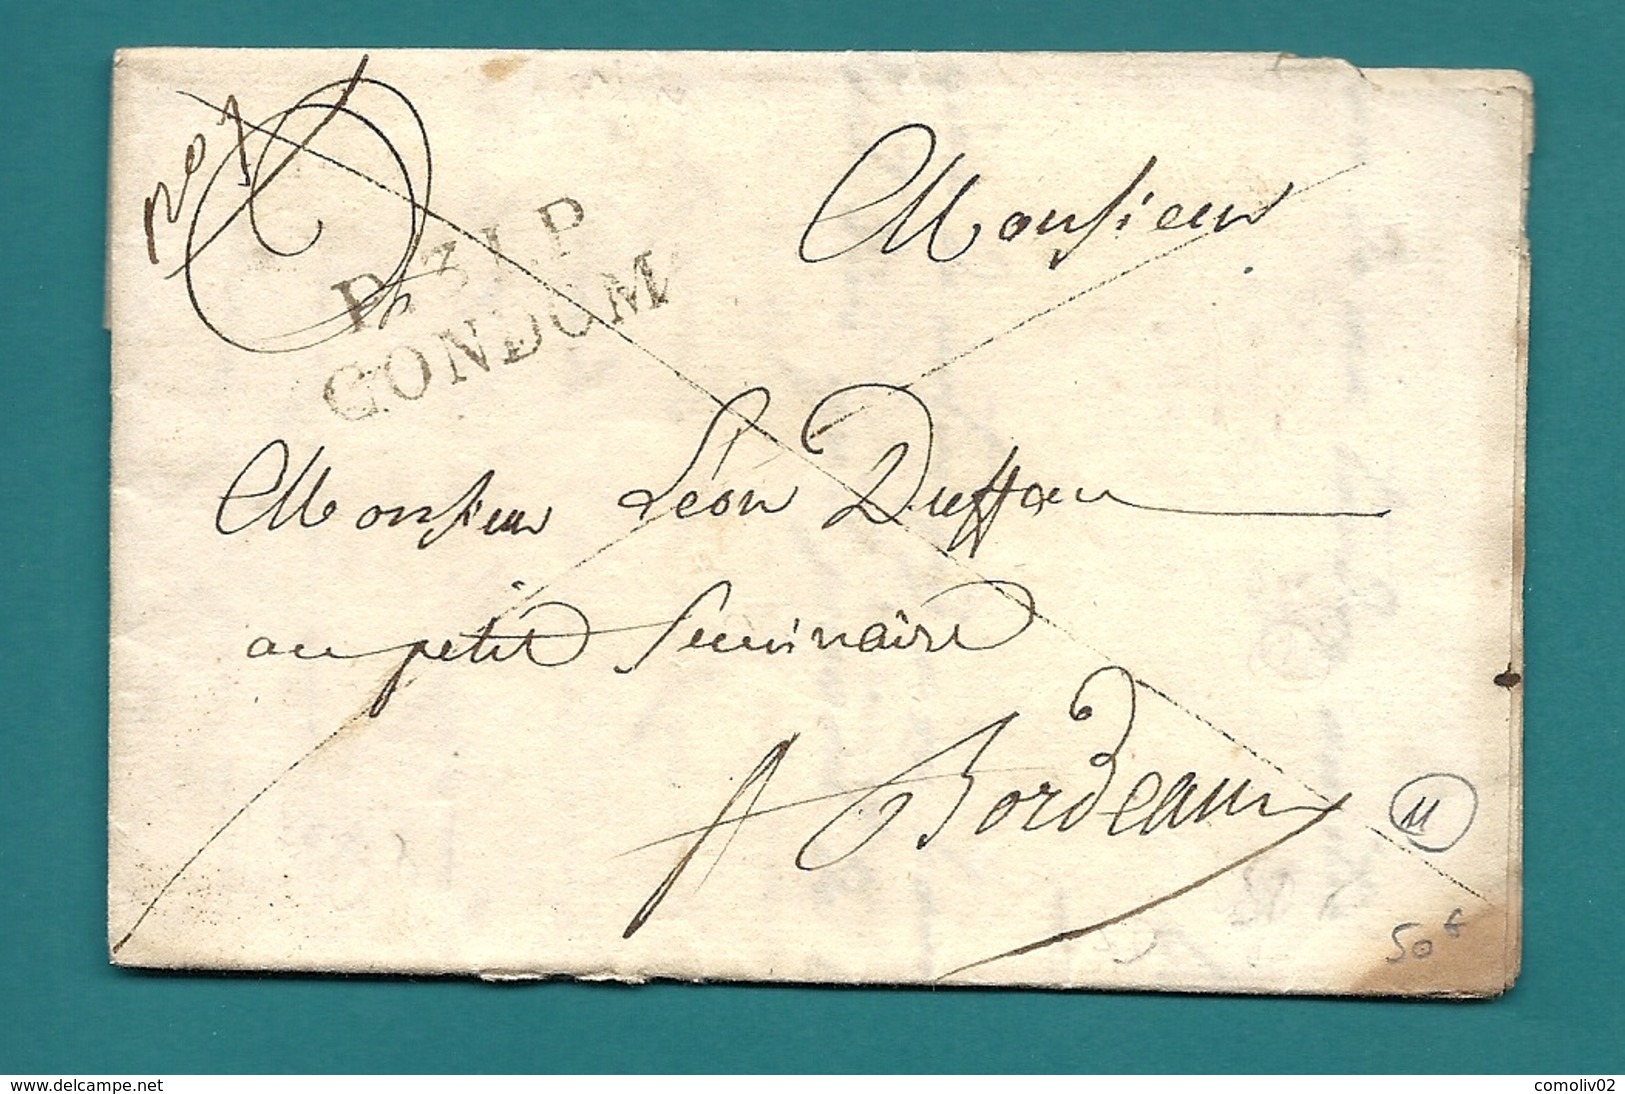 no 7
P.31.P
CONDOM
Monsieur
Monsieur Léon Duffau
au petit Seminaire
A Bordeaux
11
50 f
www.delcampe.net
comoliv02